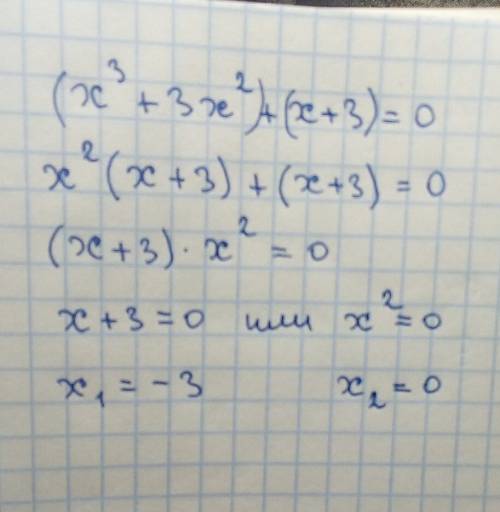 (x³ + 3x²) + (x + 3) = 0
x² (x + 3) + (x + 3) = 0
(x + 3) · x² = 0
x + 3 = 0 или x² = 0
x₁ = - 3 x₂ = 0